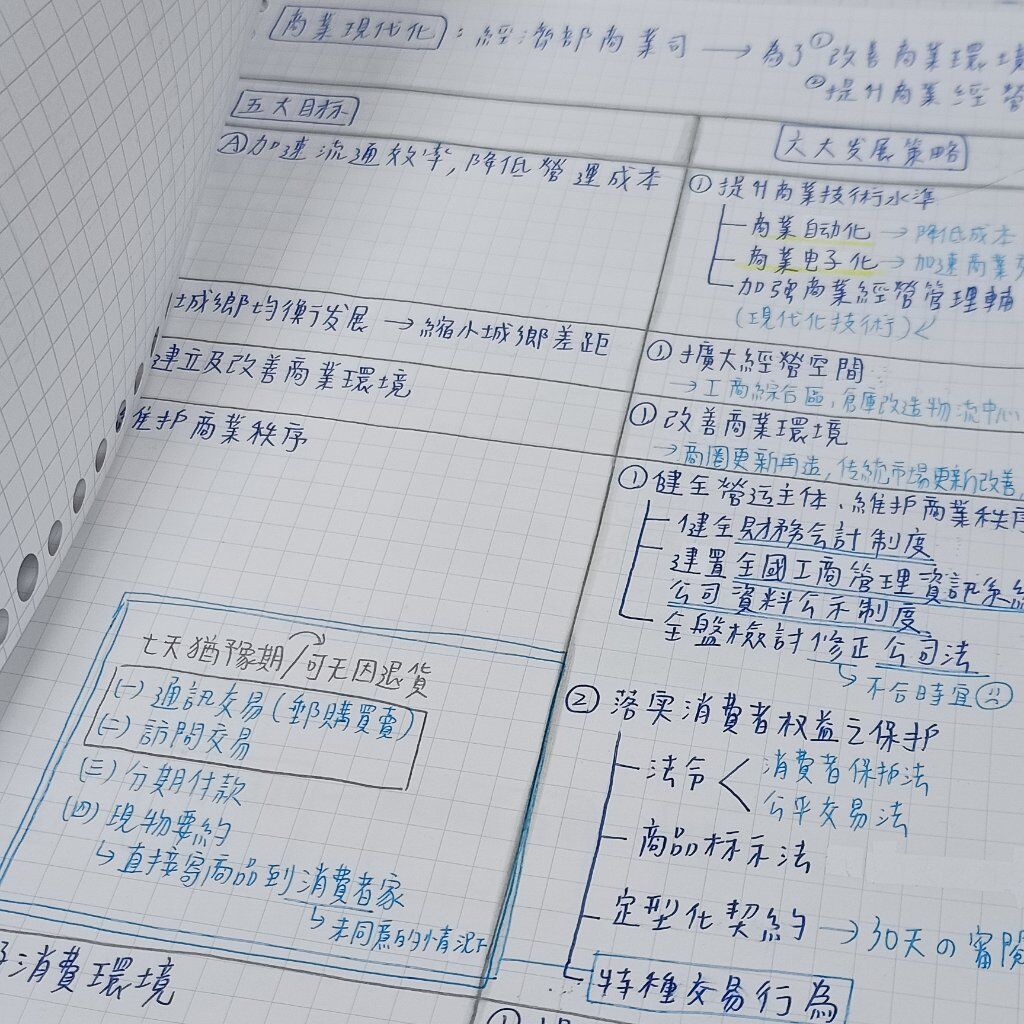 商業現代化：經濟部商業司→為了①改善商業環境
②提升商業經營
五大目標
Ⓐ加速流通效率,降低營運成本
城鄉均衡发展→縮小城鄉差距
建立及改善商業環境
維护商業秩序
七天猶豫期/可无因退貨
(一)通訊交易(郵購買賣)
(二)訪問交易
(三)分期付款
(四)現物要約
↳直接寄商品到消費者家
↳未同意的情況下
消費環境
六大发展策略
①提升商業技術水準
商業自动化→降低成本
商業电子化→加速商業
加強商業經營管理輔
(現代化技術)↙
①擴大經營空間
→工商綜合區,倉庫改造物流中心
①改善商業環境
→商圈更新再造,传統市場更新改善,
①健全營运主体、維护商業秩序
健全財務会計制度
建置全國工商管理資訊系統
公司資料公示制度
全盤檢討修正公司法
↳不合時宜
②落实消費者权益之保护
法令<消費者保护法
公平交易法
商品标示法
定型化契約→30天の審閱
特種交易行為
①